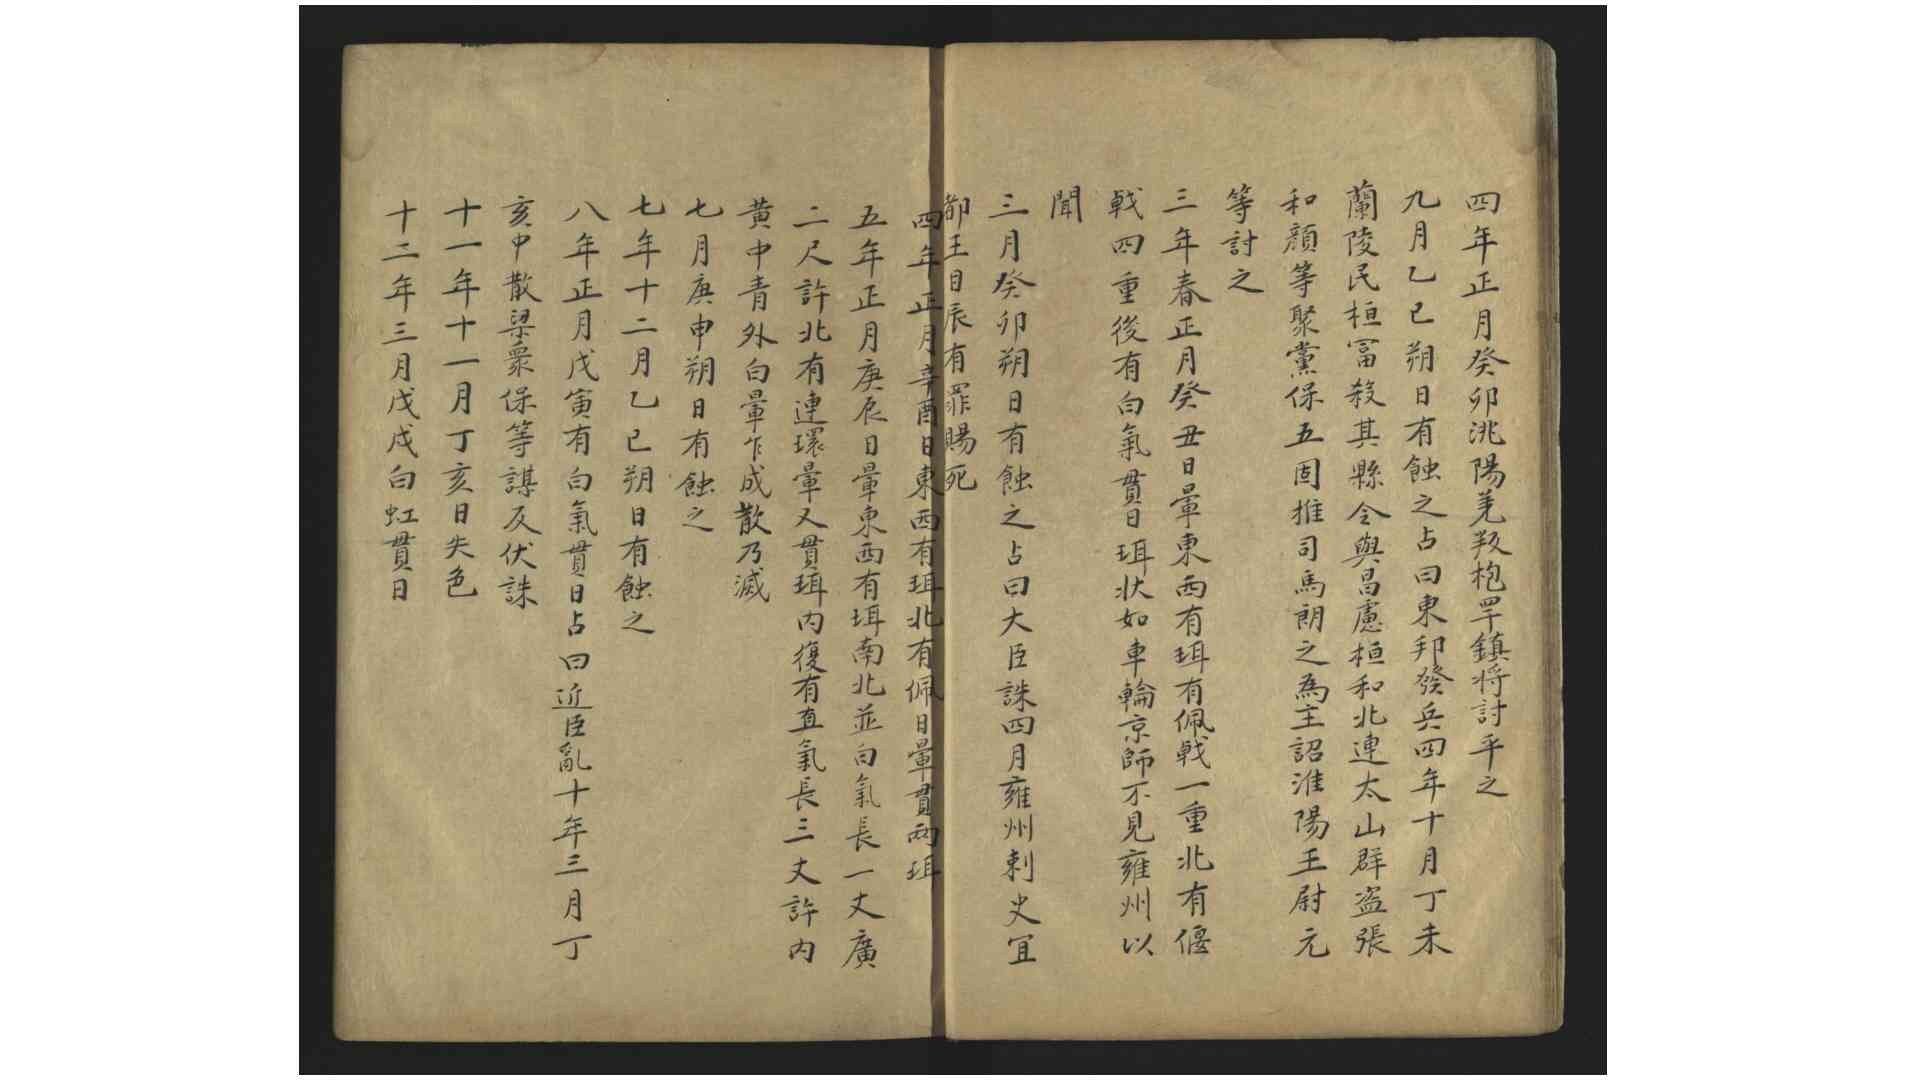 四年正月癸卯洮陽羌叛枹罕鎮将討平之
九月乙巳朔日有蝕之占曰東邦發兵四年十月丁未
蘭陵民桓富殺其縣令與昌慮桓和北連太山群盗張
和顔等聚黨保五固推司馬朗之為主詔淮陽王尉元
等討之
三年春正月癸丑日暈東西有珥有佩戟一重北有偃
戟四重後有白氣貫日珥状如車輪京師不見雍州以
聞
三月癸卯朔日有蝕之占曰大臣誅四月雍州刺史宜
都王目辰有罪賜死
四年正月辛酉日東西有珥北有佩日暈貫兩珥
五年正月庚辰日暈東西有珥南北並白氣長一丈廣
二尺許北有連環暈又貫珥内復有直氣長三丈許内
黄中青外白暈乍成散乃滅
七月庚申朔日有蝕之
七年十二月乙巳朔日有蝕之
八年正月戊寅有白氣貫日占曰近臣亂十年三月丁
亥中散梁衆保等謀反伏誅
十一年十一月丁亥日失色
十二年三月戊戌白虹貫日